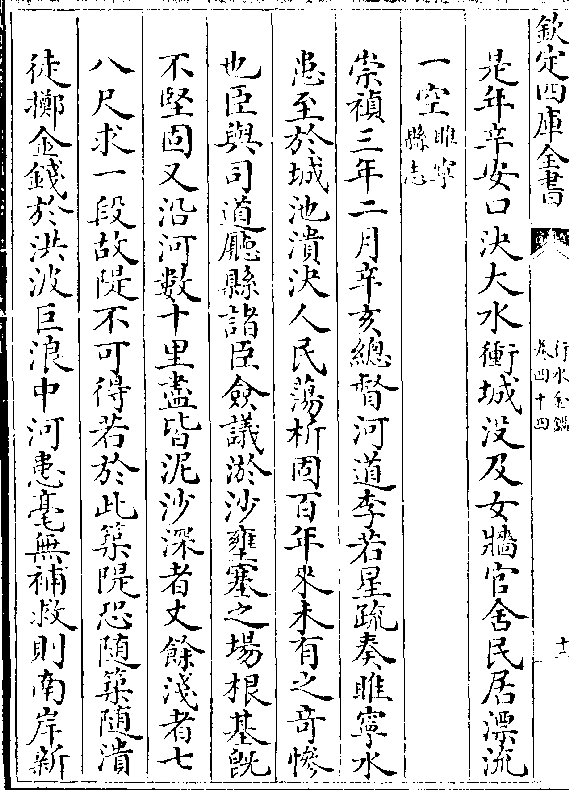 欽定四庫全書
行水金鑑
卷四十四
十二
是年辛安口決大水衝城沒及女牆官舍民居漂流
一空睢寧縣志
崇禎三年二月辛亥總督河道李若星疏奏睢寧水
患至於城池潰決人民蕩析固百年來未有之奇慘
也臣與司道廳縣諸臣僉議淤沙壅塞之場根基既
不堅固又沿河數十里盡皆泥沙深者丈餘淺者七
八尺求一段故隄不可得若於此築隄恐隨築隨潰
徒擲金錢於洪波巨浪中河患毫無補救則南岸新